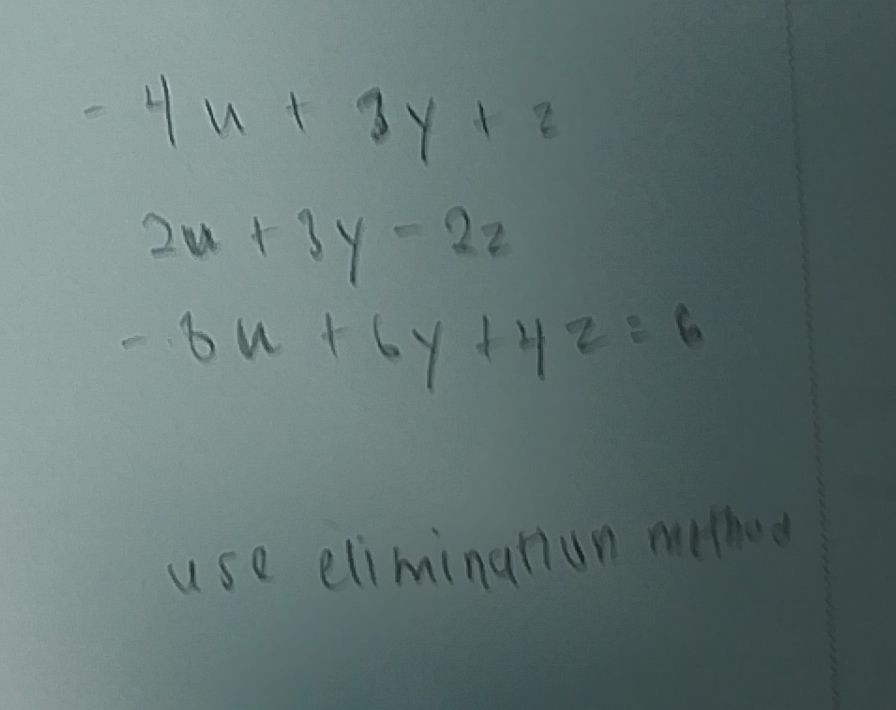 - 4u + 3y + z
2u + 3y - 2z
- 8u + 6y + 4z = 6
use elimination method